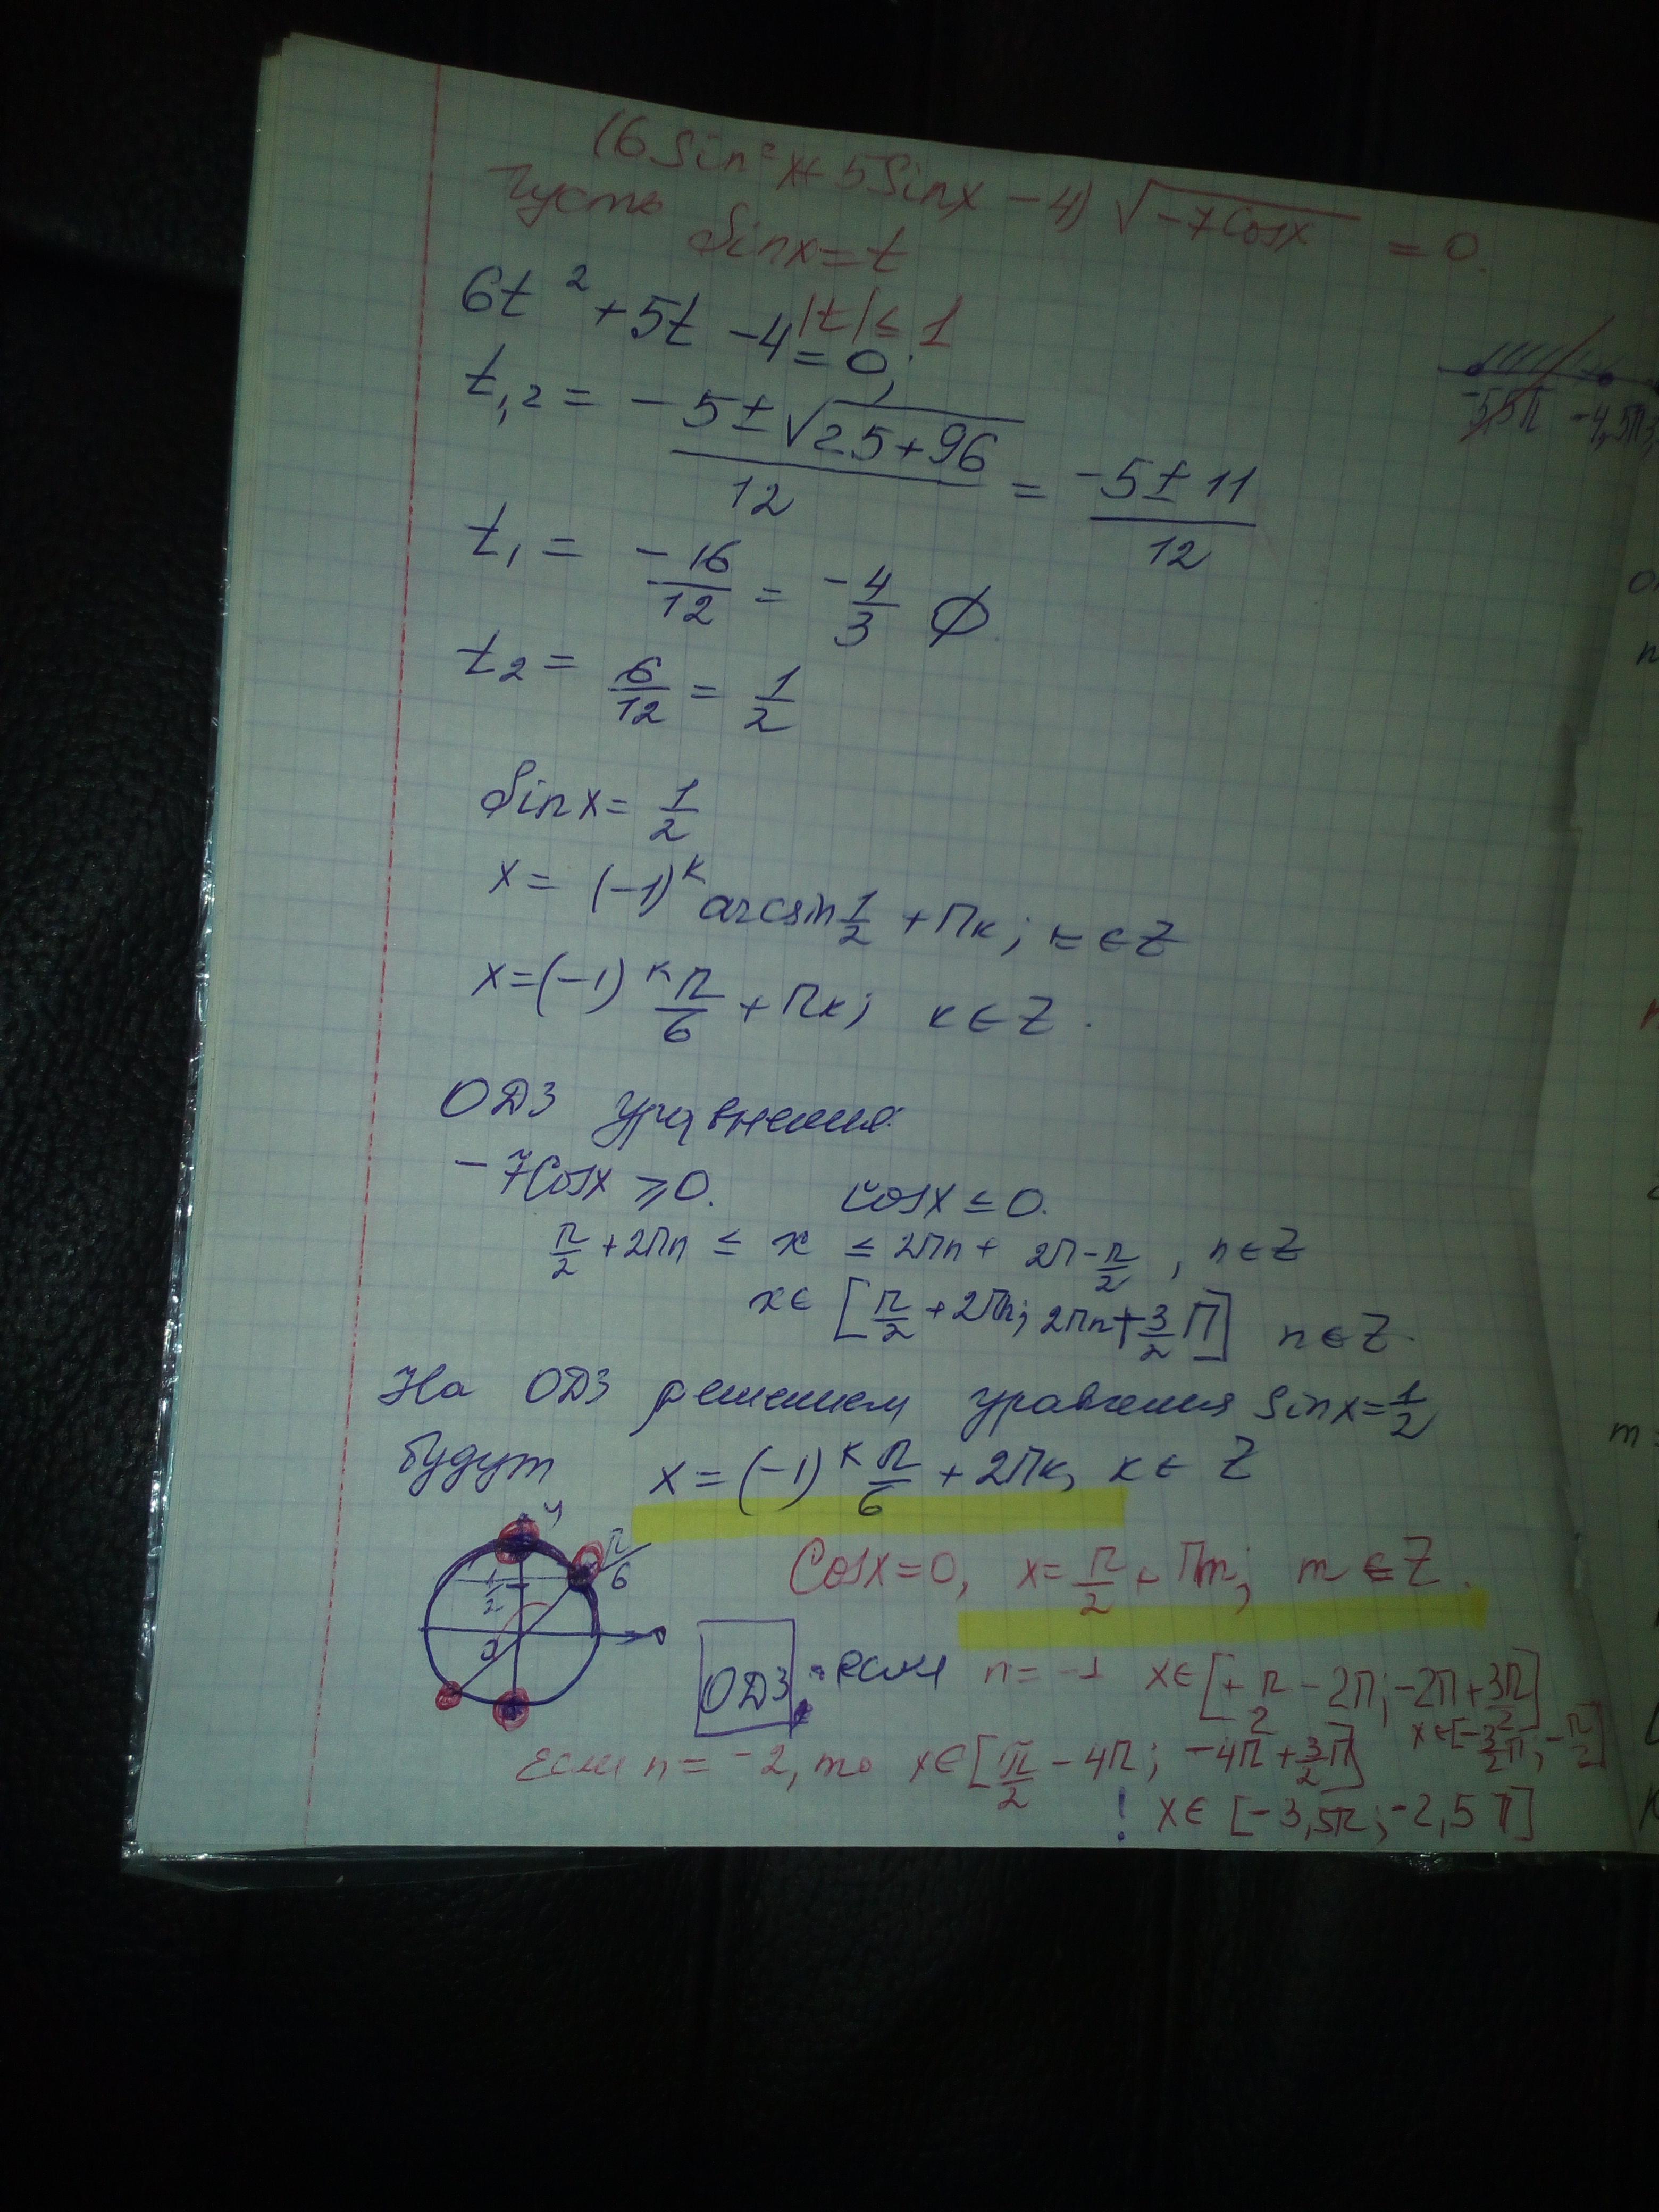 (6 Sin²x + 5 Sin x − 4) √(−7 Cos x) = 0.
Пусть Sin x = t
|t| ≤ 1
6t² + 5t − 4 = 0;
t₁,₂ = (−5 ± √(25 + 96))/12 = (−5 ± 11)/12
t₁ = −16/12 = −4/3 ∅.
t₂ = 6/12 = 1/2
Sin x = 1/2
x = (−1)ᵏ arcsin 1/2 + Пк; к ∈ Z
x = (−1)ᵏ П/6 + Пк; к ∈ Z.
ОДЗ уравнения:
−7Cos x ≥ 0. Cos x ≤ 0.
П/2 + 2Пn ≤ x ≤ 2Пn + 2П − П/2, n ∈ Z
x ∈ [П/2 + 2Пn; 2Пn + 3/2 П] n ∈ Z.
На ОДЗ решением уравнения Sin x = 1/2
будут x = (−1)ᵏ П/6 + 2Пк, к ∈ Z
y
П/6
1/2
0
Cos x = 0, x = П/2 + Пm; m ∈ Z.
ОДЗ: если n = −1 x ∈ [+ П/2 − 2П; −2П + 3П/2]
x ∈ [−3/2 П; −П/2]
Если n = −2, то x ∈ [П/2 − 4П; −4П + 3/2 П]
! x ∈ [−3,5П; −2,5П]
−5,5П −4,5П
m